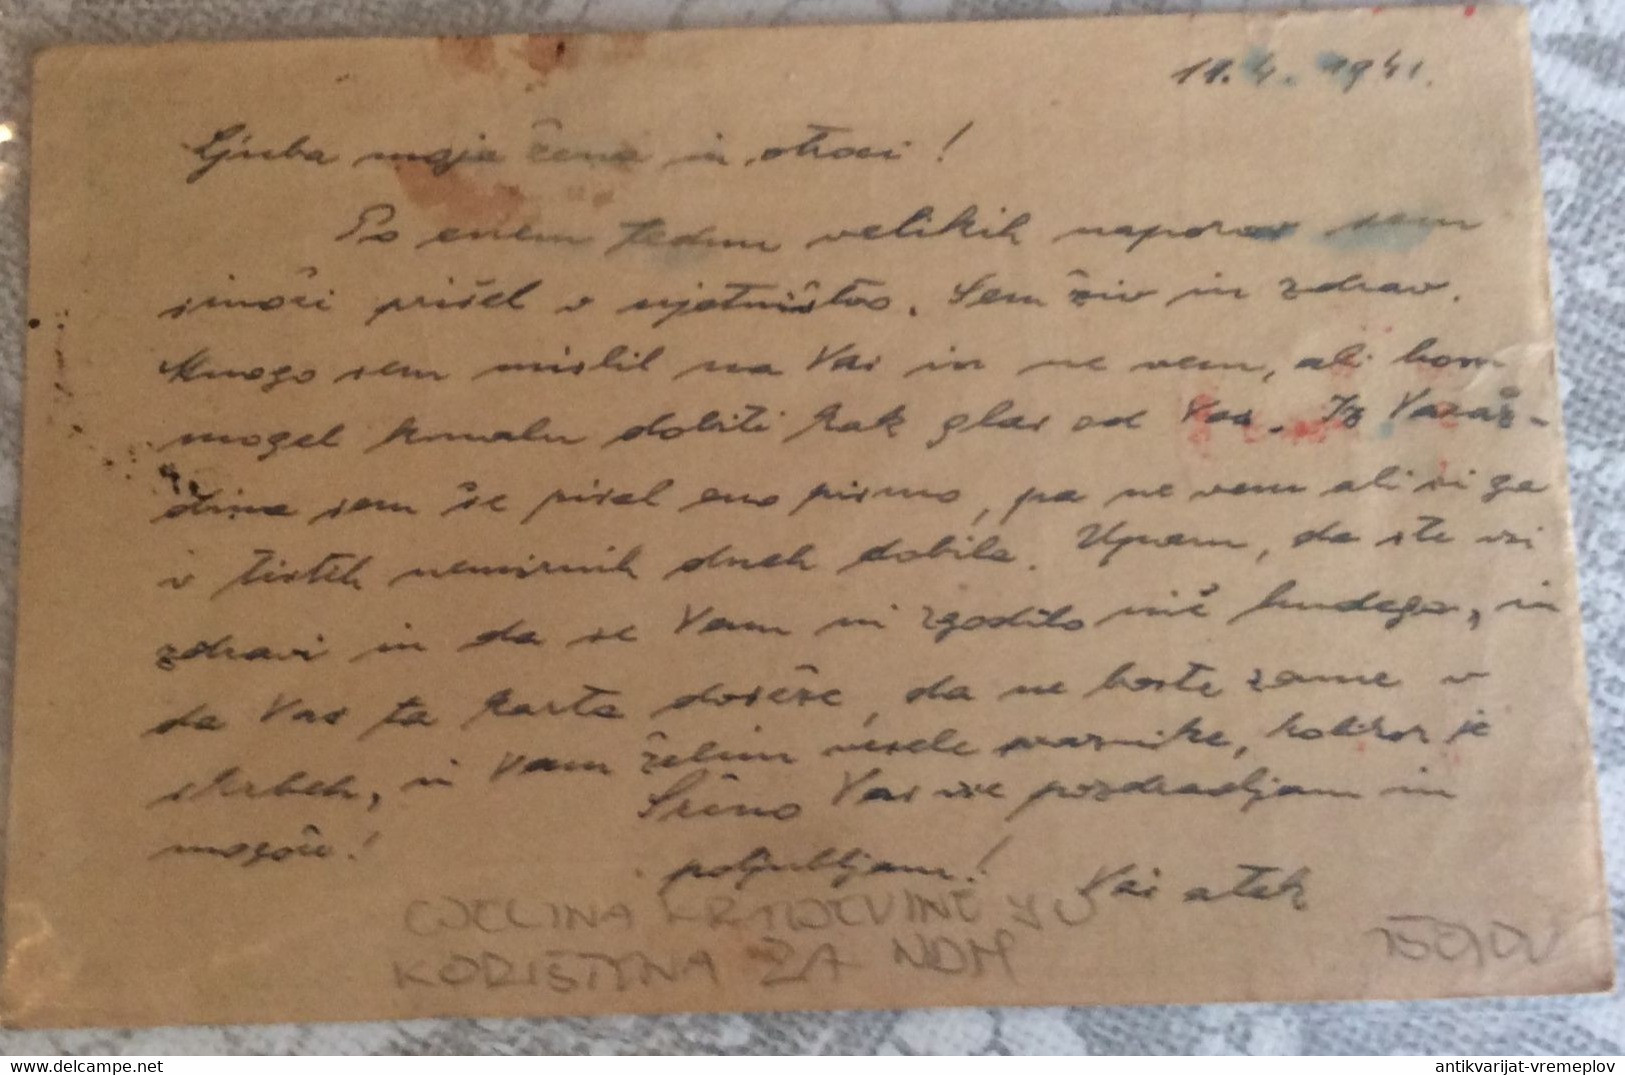 11. 4. 1941.
Ljuba moja žena in otroci!
Po enem tednu velikih naporov sem
sinoči prišel v ujetništvo. Sem živ in zdrav.
Mnogo sem mislil na Vas in ne vem, ali bom
mogel kmalu dobiti kak glas od Vas. Iz Varaž-
dina sem še pisal eno pismo, pa ne vem ali si ga
v tistih nemirnih dneh dobila. Upam, da ste vsi
zdravi in da se Vam ni zgodilo nič hudega, in
da Vas ta karta doseže, da ne boste zame v
skrbeh, in Vam želim vesele praznike, kolikor je
mogoče! Srčno Vas vse pozdravljam in
poljubljam! Vaš atek
CJELINA KRALJEVINE JU
KORIŠTENA ZA NDH
antikvarijat-vremeplov